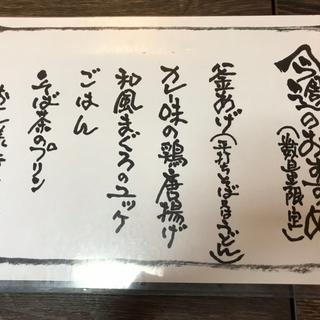 今週のおすすめ
(数量限定)
釜あげ(平打ちそばorうどん)
カレー味の鶏唐揚げ
和風まぐろのユッケ
ごはん
そば茶のプリン